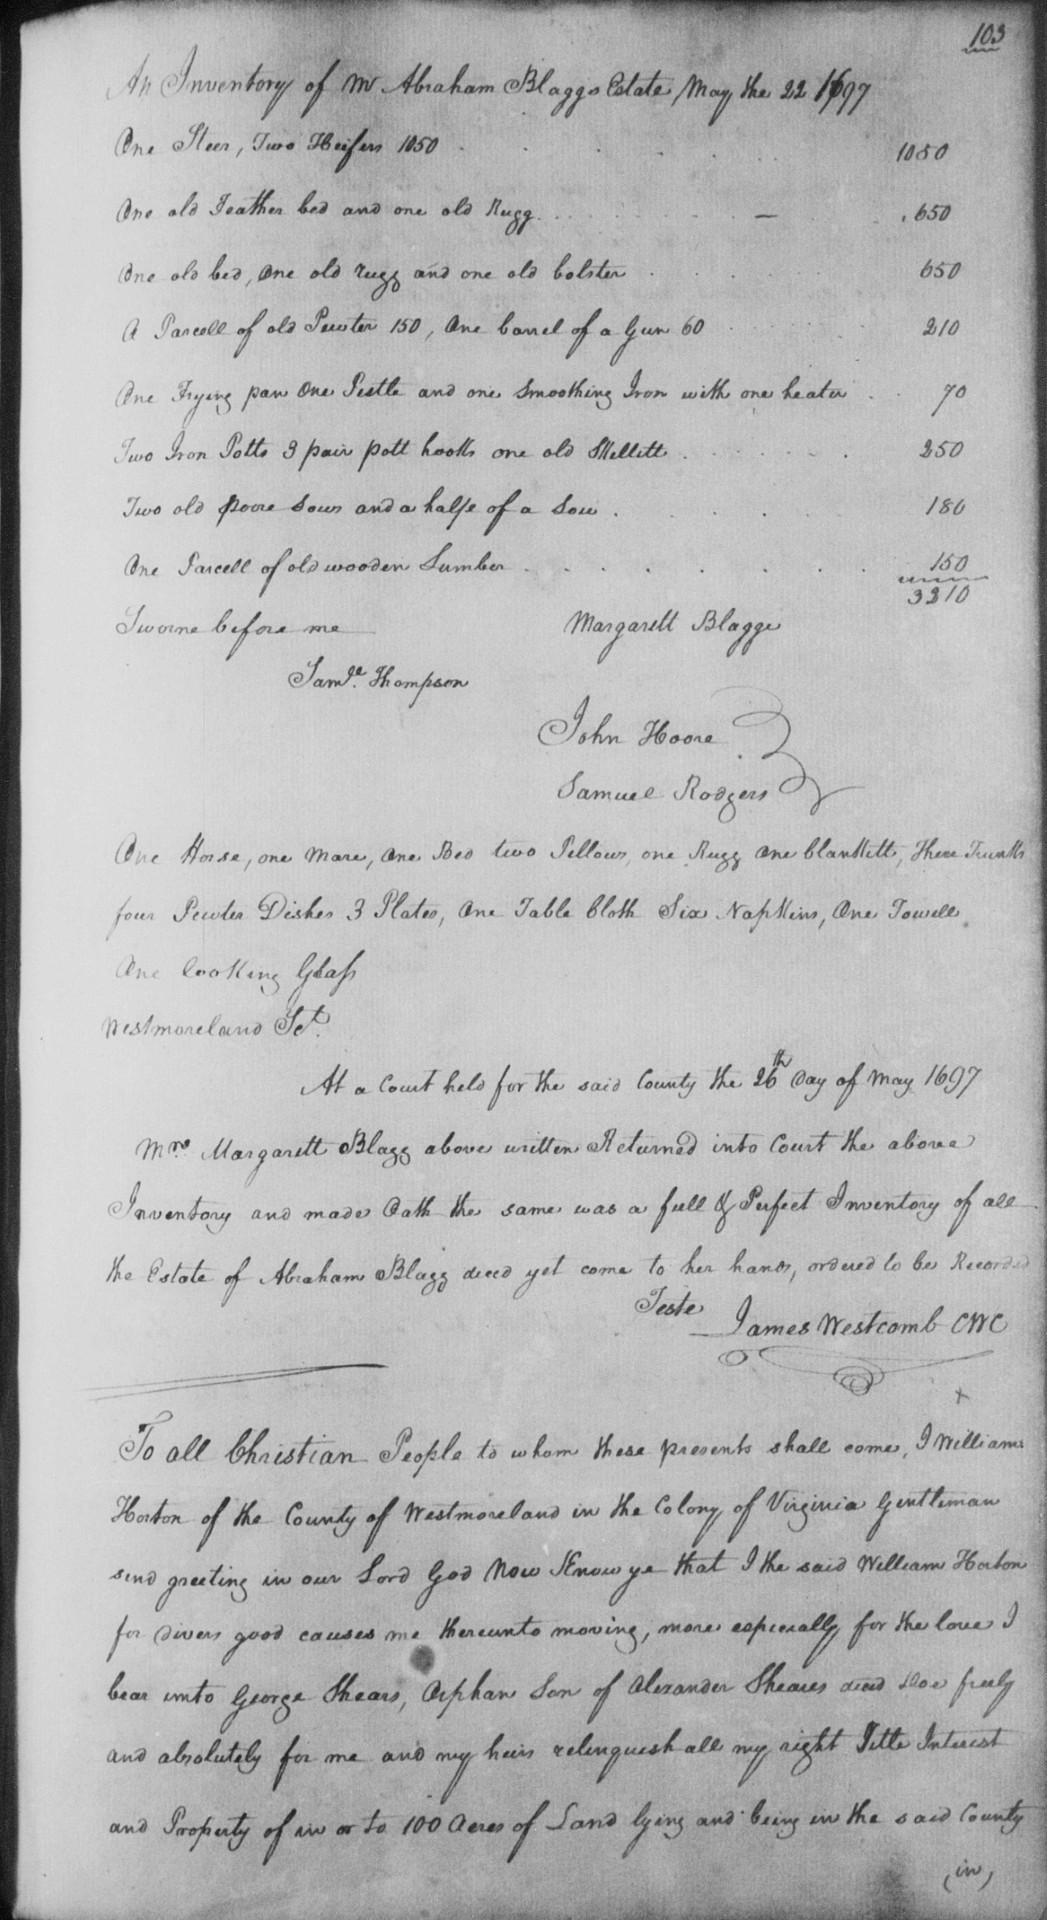 103
An Inventory of Mr Abraham Blaggs Estate May the 22 1697
One Steer, Two Heifers 1050 . . . . . 1050
One old Feather bed and one old Rugg . . . . — . 650
One old bed, One old rugg and one old bolster . . . . 650
A Parcell of old Pewter 150, One barrel of a Gun 60 . . . 210
One Frying pan One Pestle and one Smoothing Iron with one heater . . 70
Two Iron Potts 3 pair pott hooks one old Skellett . . . . 250
Two old poore Sows and a halfe of a Sow . . . . . 180
One Parcell of old wooden Lumber . . . . . . . 150
3210
Sworne before me Margarett Blagge
Samle. Thompson
John Hoore
Samuel Rodgers
One Horse, one Mare, One Bed two Pillows, one Rugg One blankett, Three Trunks
four Pewter Dishes 3 Plates, One Table Cloth Six Napkins, One Towell
One looking Glass
Westmoreland Sct.
At a Court held for the said County the 26th Day of May 1697
Mrs. Margarett Blagg above written Returned into Court the above
Inventory and made Oath the same was a full & Perfect Inventory of all
the Estate of Abraham Blagg deced yet come to her hands, ordered to be Recorded
Teste
James Westcomb CWC
x
To all Christian People to whom these presents shall come, I William
Horton of the County of Westmoreland in the Colony of Virginia Gentleman
send greeting in our Lord God Now Know ye that I the said William Horton
for divers good causes me thereunto moving, more especially for the love I
bear unto George Shears, Orphan Son of Alexander Sheares deced Doe freely
and absolutely for me and my heirs relinquesh all my right Title Interest
and Property of in or to 100 Acres of Land lying and being in the said County
(in)